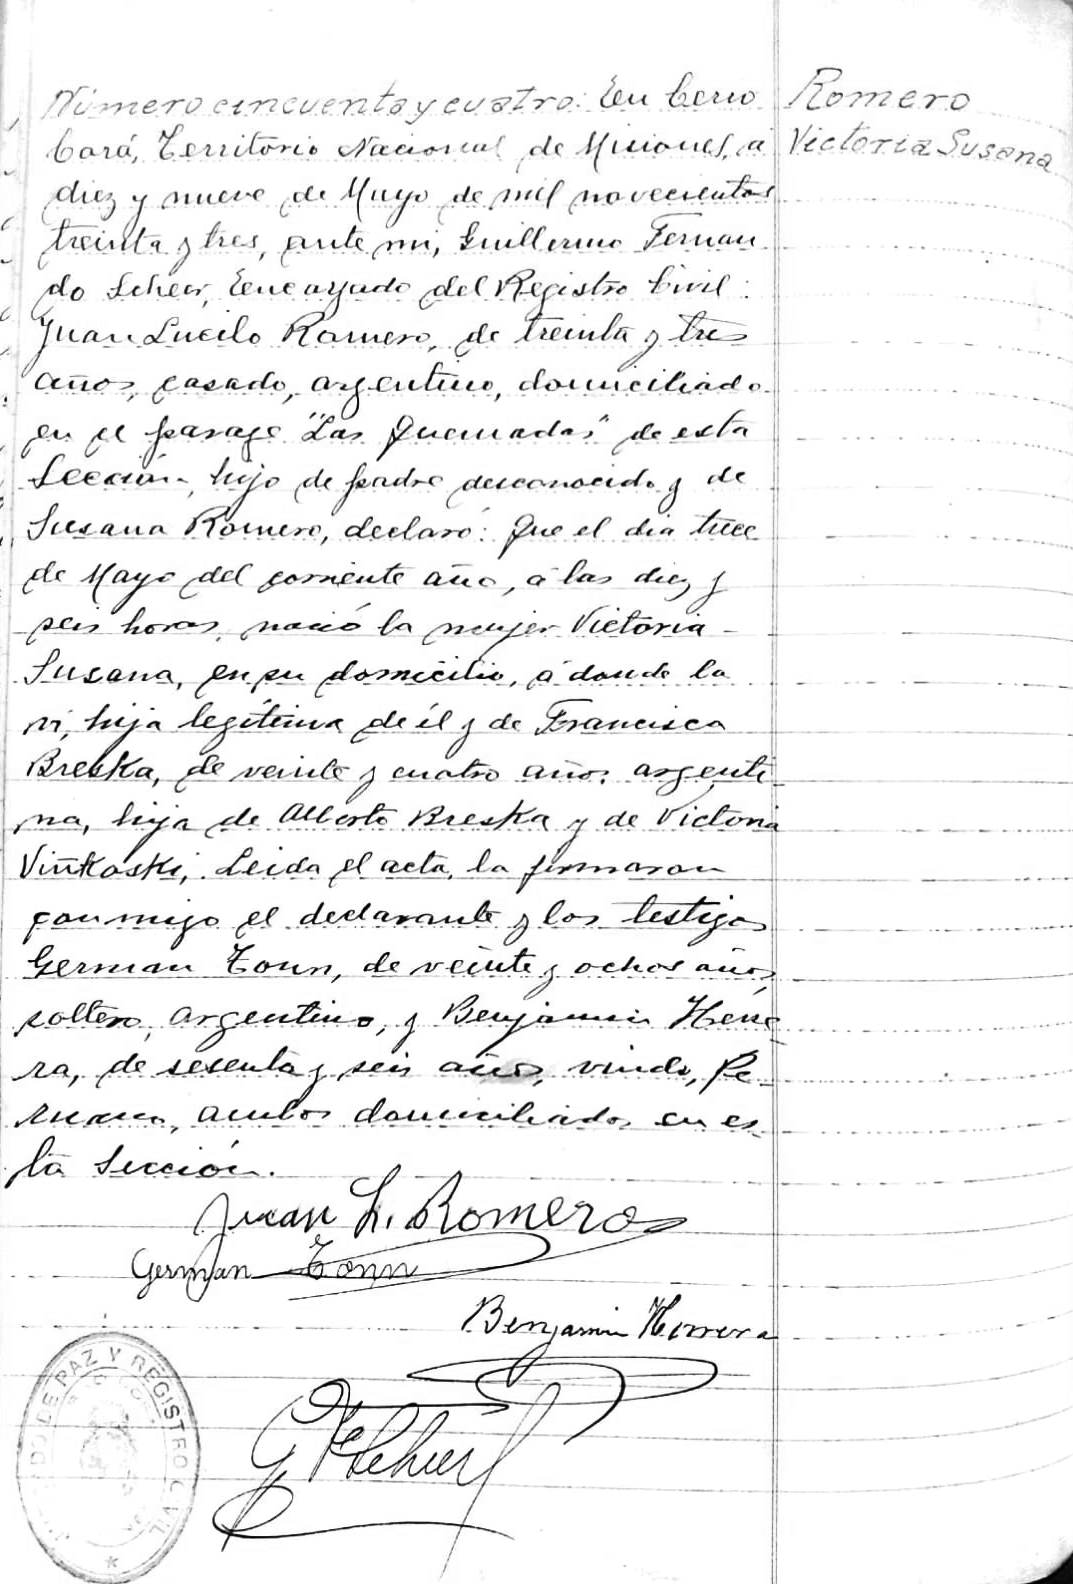 Número cincuenta y cuatro: En Cerro
Romero
Victoria Susana
Corá, Territorio Nacional de Misiones, a
diez y nueve de Mayo de mil novecientos
treinta y tres, ante mi, Guillermo Fernan
do Scheer, Encargado del Registro Civil:
Juan Lucilo Romero, de treinta y tres
años, casado, argentino, domiciliado
en el paraje "Las Quemadas" de esta
Sección, hijo de padre desconocido y de
Susana Romero, declaró: Que el dia trece
de Mayo del corriente año, a las diez y
seis horas, nació la mujer Victoria
Susana, en su domicilio, a donde la
vi, hija legítima de él y de Francisca
Breska, de veinte y cuatro años, argenti
na, hija de Alberto Breska y de Victoria
Viñkoski; Leida el acta, la firmaron
conmigo el declarante y los testigos
German Tonn, de veinte y ochos años,
soltero, argentino, y Benjamin Herre
ra, de sesenta y seis años, viudo, Pe-
ruano, ambos domiciliados en es
ta Sección.
Juan L. Romero
German Tonn
Benjamin Herrera
G F Scheer
DO DE PAZ Y REGISTRO CIVIL